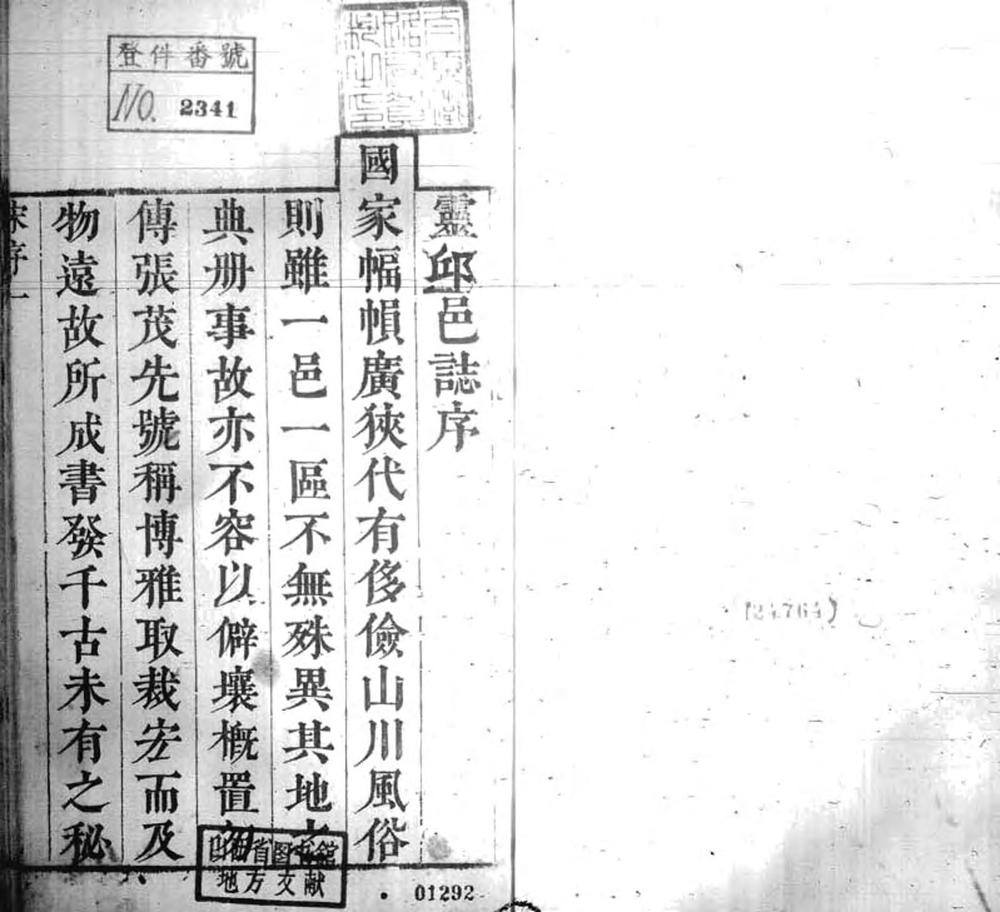 靈邱邑誌序
國家幅幀廣狹代有侈儉山川風俗
則雖一邑一區不無殊異其地
典册事故亦不容以僻壤概置
傳張茂先號稱博雅取裁宏而及
物遠故所成書發千古未有之秘
序一
登件番號
NO. 2341
省图书館
地方文献
01292
(24764)